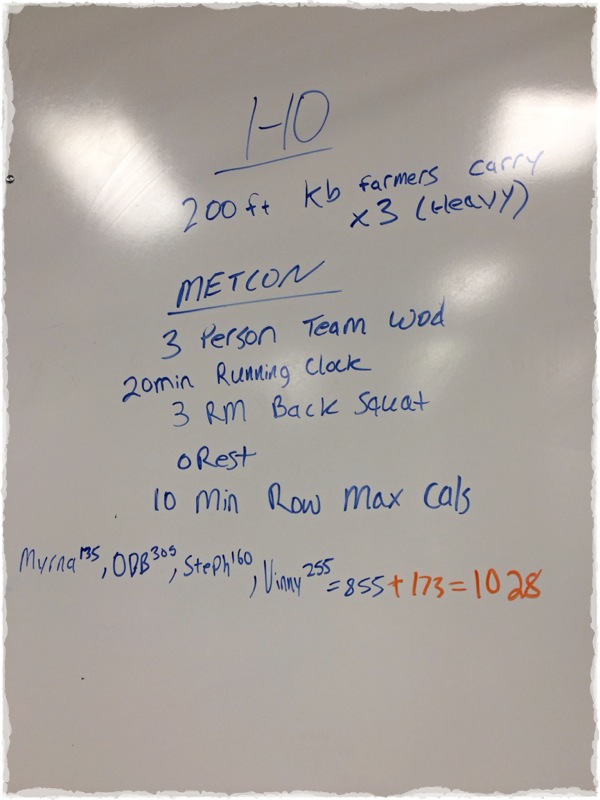 1-10
200ft kb farmers carry
x3 (Heavy)
METCON
3 Person Team Wod
20min Running Clock
3 RM Back Squat
0 Rest
10 Min Row Max Cals
Myrna 135, ODB 305, Steph 160, Vinny 255 = 855 + 173 = 1028